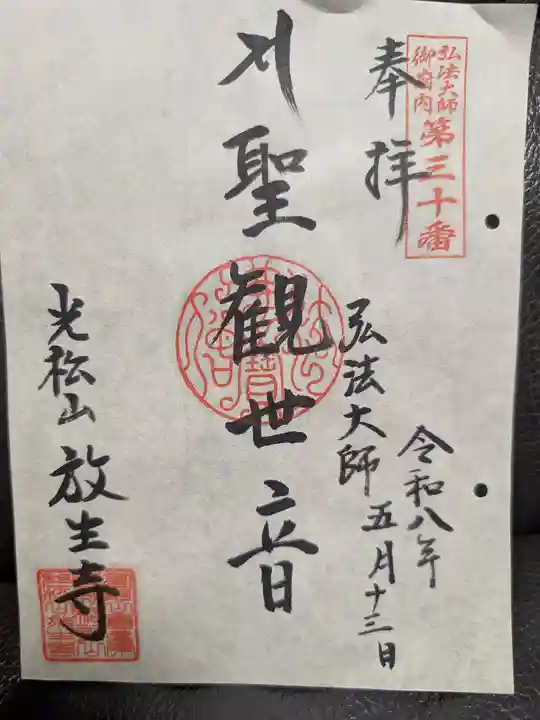 弘法大師
御府内
第三十番
奉拝
令和八年
五月十三日
弘法大師
聖観世音
光松山 放生寺